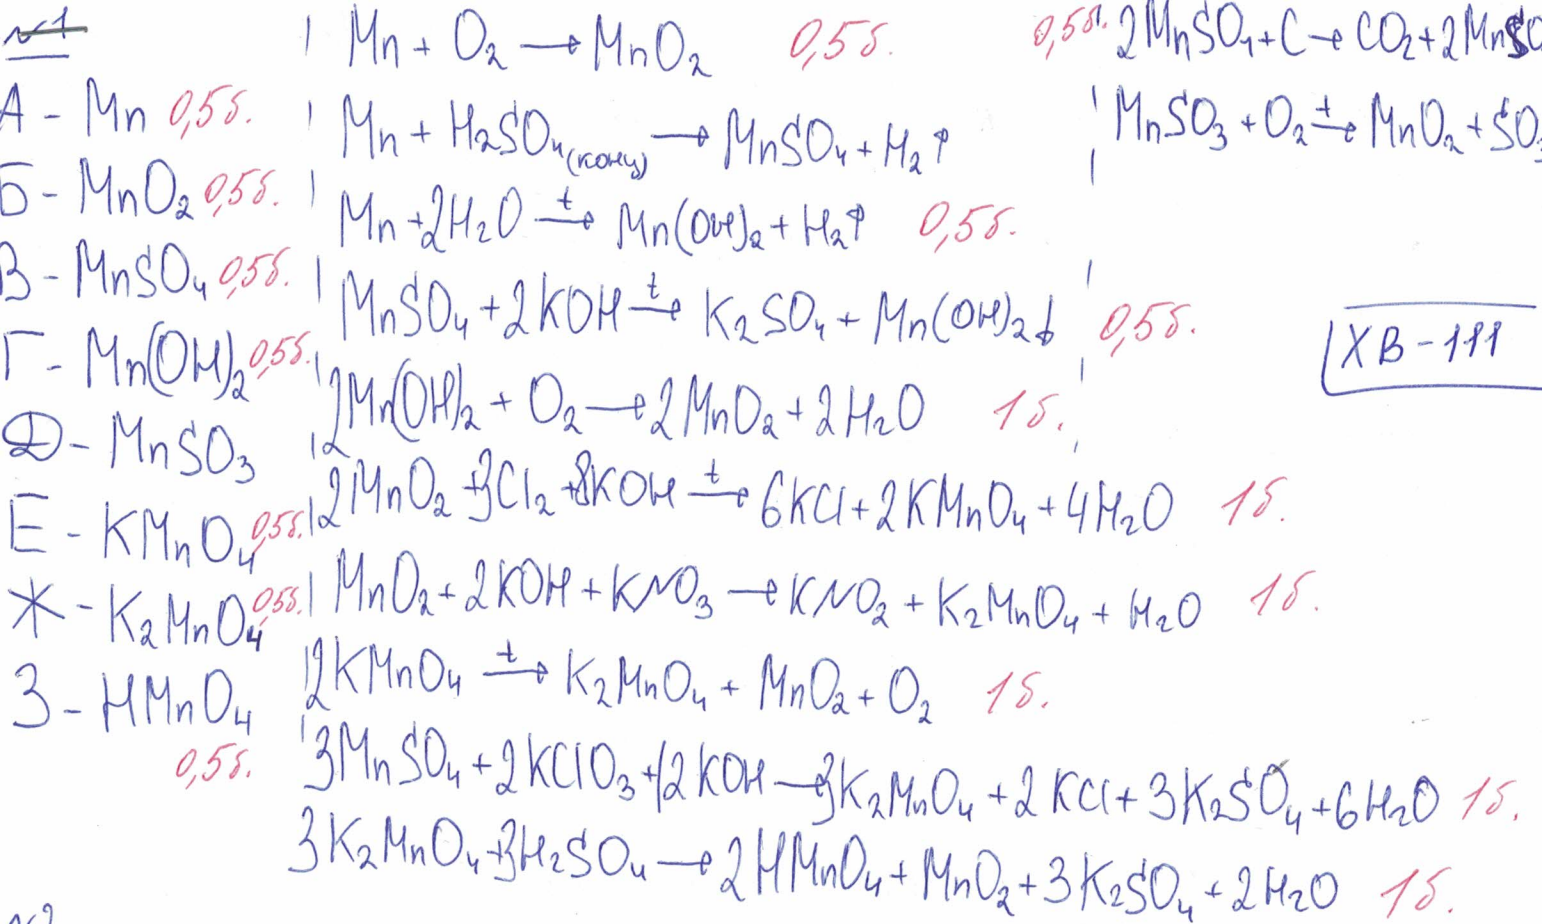 №1
А - Mn 0,5б.
Б - MnO₂ 0,5б.
В - MnSO₄ 0,5б.
Г - Mn(OH)₂ 0,5б.
Д - MnSO₃
Е - KMnO₄ 0,5б.
Ж - K₂MnO₄ 0,5б.
З - HMnO₄
0,5б.
Mn + O₂ → MnO₂ 0,5б.
Mn + H₂SO₄(конц) → MnSO₄ + H₂↑
Mn + 2H₂O t→ Mn(OH)₂ + H₂↑ 0,5б.
MnSO₄ + 2KOH t→ K₂SO₄ + Mn(OH)₂↓ 0,5б.
2Mn(OH)₂ + O₂ → 2MnO₂ + 2H₂O 1б.
2MnO₂ + 3Cl₂ + 8KOH t→ 6KCl + 2KMnO₄ + 4H₂O 1б.
MnO₂ + 2KOH + KNO₃ → KNO₂ + K₂MnO₄ + H₂O 1б.
2KMnO₄ t→ K₂MnO₄ + MnO₂ + O₂ 1б.
3MnSO₄ + 2KClO₃ + 12KOH → 3K₂MnO₄ + 2KCl + 3K₂SO₄ + 6H₂O 1б.
3K₂MnO₄ + 3H₂SO₄ → 2HMnO₄ + MnO₂ + 3K₂SO₄ + 2H₂O 1б.
0,5б. 2MnSO₄ + C → CO₂ + 2MnSO
MnSO₃ + O₂ t→ MnO₂ + SO₃
ХВ-111
№2